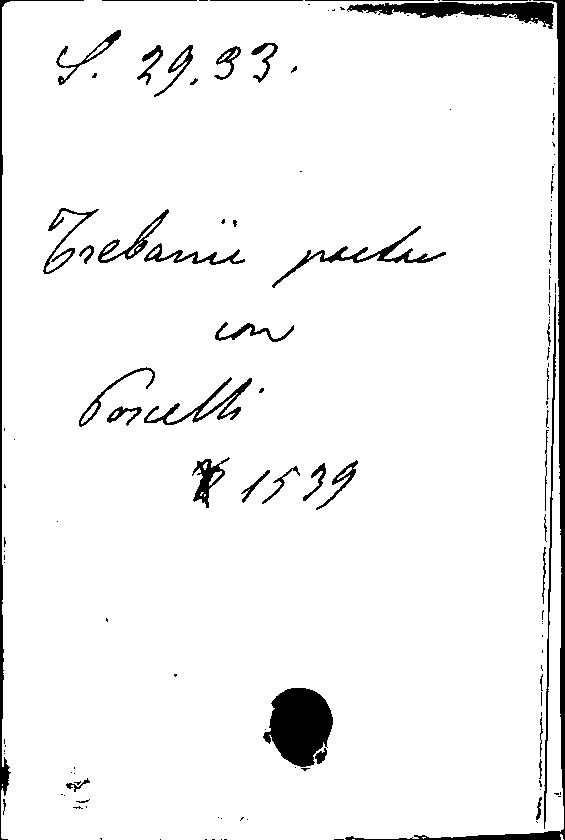 S. 29.33.
Trebanii poetae
con
Porcelli
1539